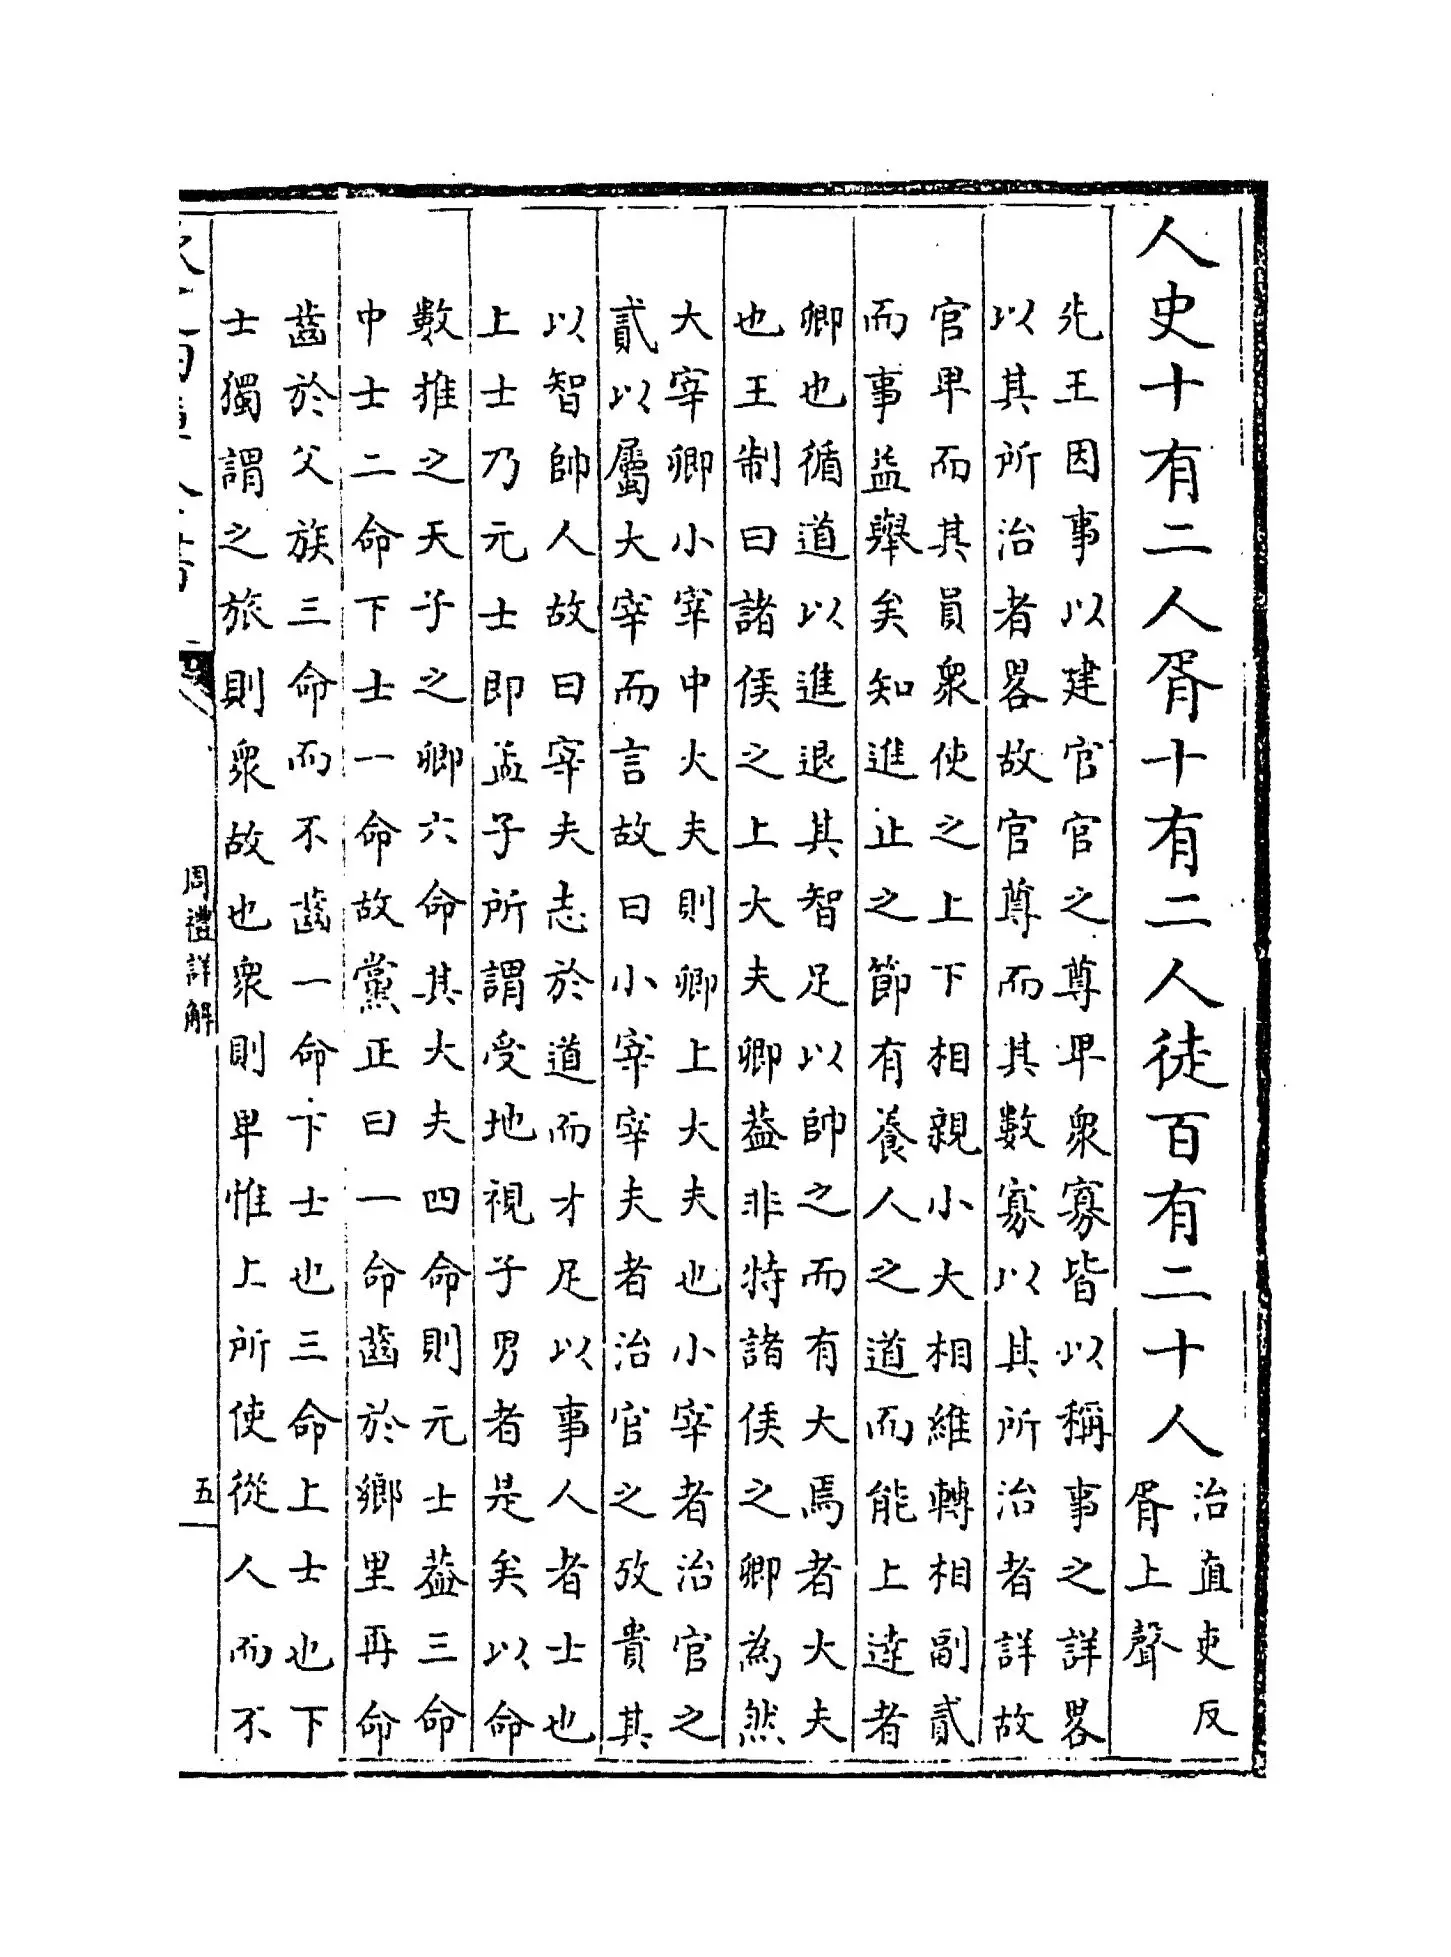 人史十有二人胥十有二人徒百有二十人治直吏反
胥上聲
先王因事以建官官之尊卑衆寡皆以稱事之詳畧
以其所治者畧故官尊而其數寡以其所治者詳故
官卑而其員衆使之上下相親小大相維轉相副貳
而事益舉矣知進止之節有養人之道而能上達者
卿也循道以進退其智足以帥之而有大焉者大夫
也王制曰諸侯之上大夫卿葢非特諸侯之卿為然
大宰卿小宰中大夫則卿上大夫也小宰者治官之
貳以屬大宰而言故曰小宰宰夫者治官之攷貴其
以智帥人故曰宰夫志於道而才足以事人者士也
上士乃元士即孟子所謂受地視子男者是矣以命
數推之天子之卿六命其大夫四命則元士葢三命
中士二命下士一命故黨正曰一命齒於鄉里再命
齒於父族三命而不齒一命下士也三命上士也下
士獨謂之旅則衆故也衆則卑惟上所使從人而不
周禮詳解
五